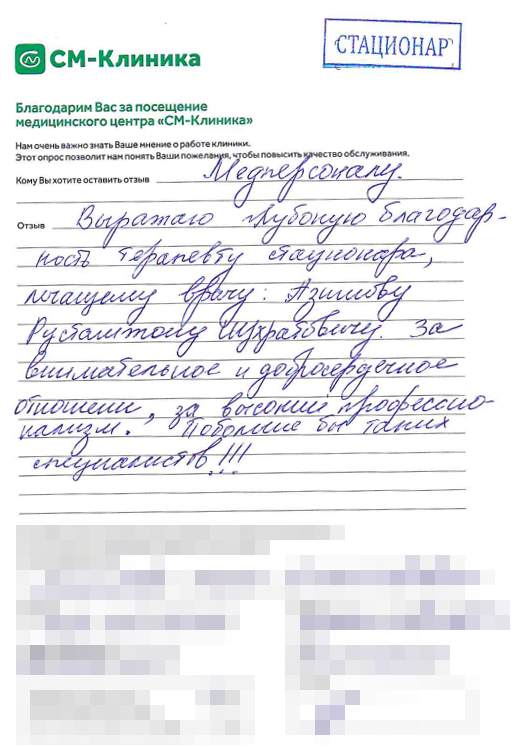 СТАЦИОНАР
СМ-Клиника
Благодарим Вас за посещение
медицинского центра «СМ-Клиника»
Нам очень важно знать Ваше мнение о работе клиники.
Этот опрос позволит нам понять Ваши пожелания, чтобы повысить качество обслуживания.
Кому Вы хотите оставить отзыв Медперсоналу.
Отзыв Выражаю глубокую благодар-
ность терапевту стационара,
лечащему врачу: Азимову
Рустамжону Шухратовичу. За
внимательное и добросердечное
отношени, за высокий профессио-
нализм. Побольше бы таких
специалистов!!!